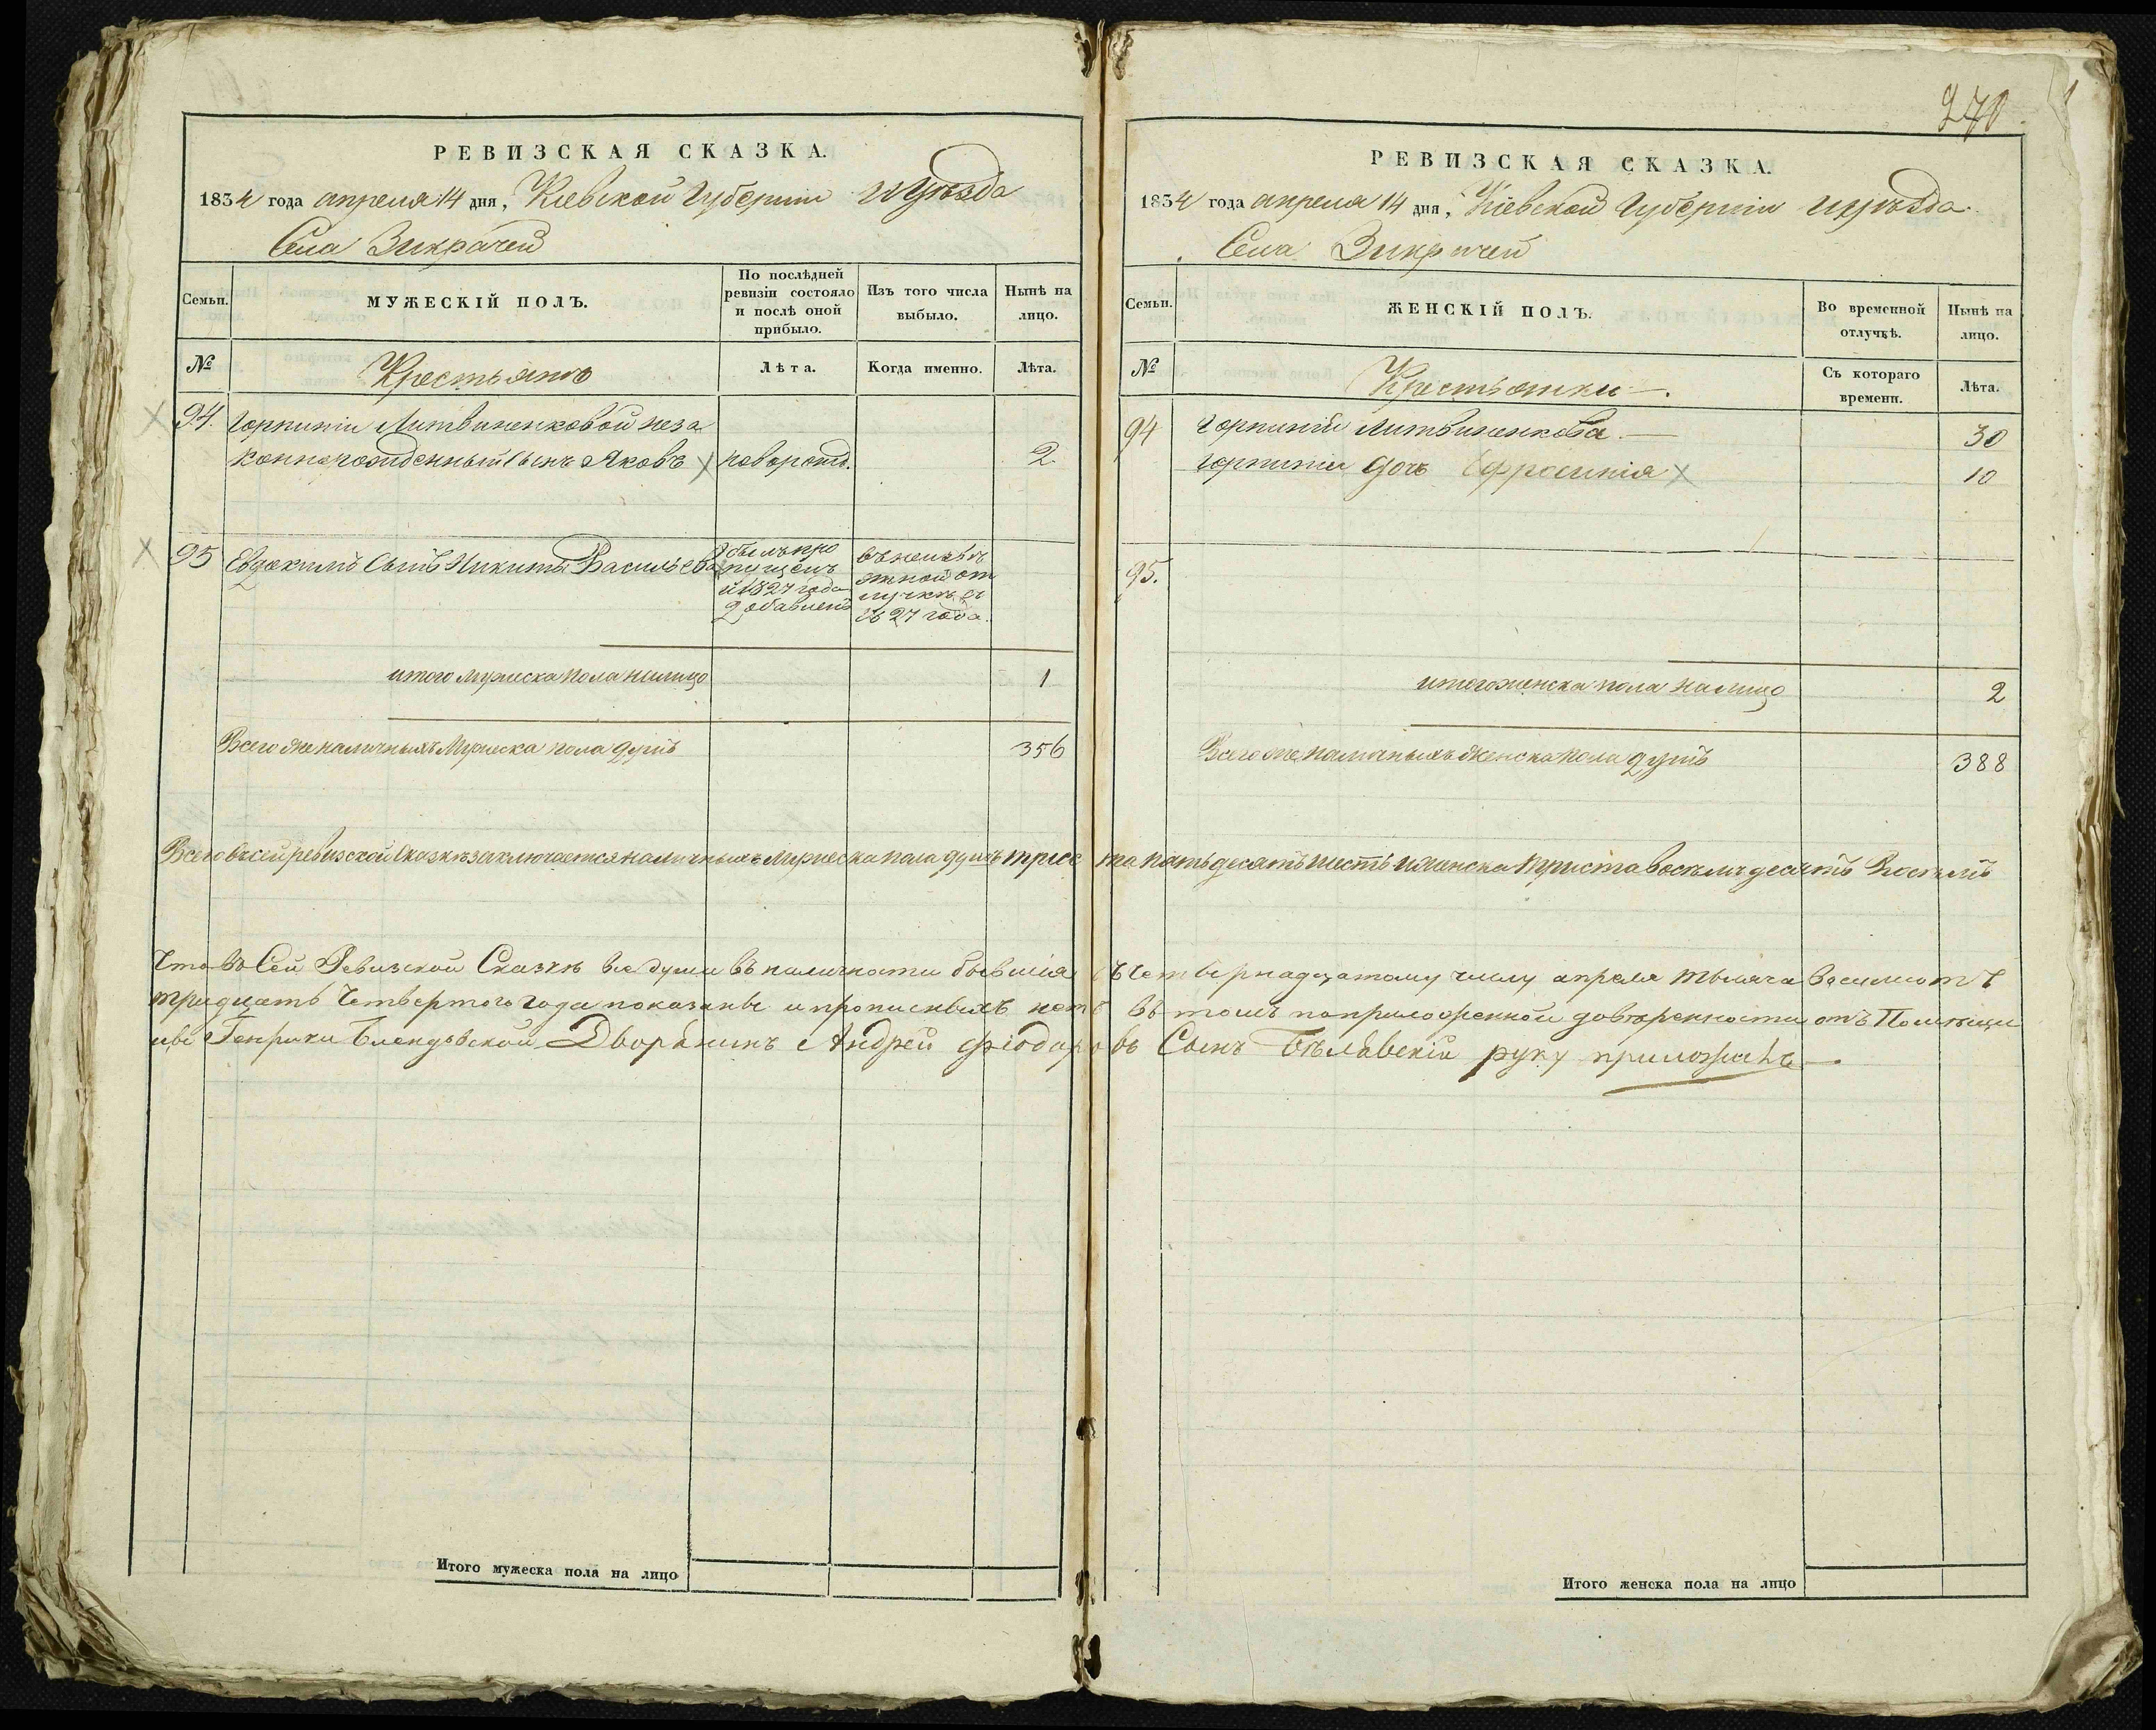 РЕВИЗСКАЯ СКАЗКА.
1834 года апреля 14 дня, Кіевской Губерніи и Уѣзда
Села Зикрачей
Семьи.
МУЖЕСКІЙ ПОЛЪ.
По послѣдней ревизіи состояло и послѣ оной прибыло.
Изъ того числа выбыло.
Нынѣ на лицо.
№
Крестьяне
Лѣта.
Когда именно.
Лѣта.
94. Горпиніи Литвиненковой неза
коннорожденный Сынъ Яковъ новорожд. 2
95 Евдокимъ Сынъ Никиты Васильева
былъ про
пущенъ
и 1827 года
добавленъ
въ неизвѣ
стной от
лучкѣ съ
1827 года.
итого мужеска пола налицо 1
Всего же наличныхъ Мужеска пола душъ 356
270
РЕВИЗСКАЯ СКАЗКА.
1834 года апреля 14 дня, Кіевской Губерніи и уѣзда.
Села Зикрачей
Семьи.
ЖЕНСКІЙ ПОЛЪ.
Во временной отлучкѣ.
Нынѣ на лицо.
№
Крестьянки.
Съ котораго времени.
Лѣта.
94 Горпинія Литвиненкова 30
Горпиніи дочь Ефросинія 10
95.
итого женска пола налицо 2
Всего же наличныхъ женска пола душъ 388
Всего въ сей ревизской сказкѣ заключается наличныхъ Мужеска пола душъ триста пятьдесятъ шесть и женска триста восемьдесятъ Восемь
Что въ Сей Ревизской Сказкѣ все души въ наличности бывшія къ Четвернадцатому числу апреля тысяча Восемьсотъ
тридцать Четвертого Года показаны и прописныхъ нетъ въ томъ по приложенной довѣренности отъ Помѣщи
цы Генрики Дворянинъ Андрей Фіодоровъ Сынъ Бѣлявскій руку приложилъ
Итого мужеска пола на лицо
Итого женска пола на лицо